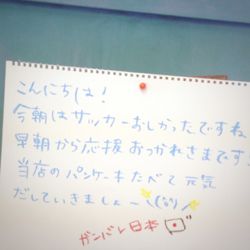 こんにちは!
今朝はサッカーおしかったですね
早朝から応援おつかれさまです!
当店のパンケーキたべて元気
だしていきましょ〜\(^o^)/
ガンバレ日本